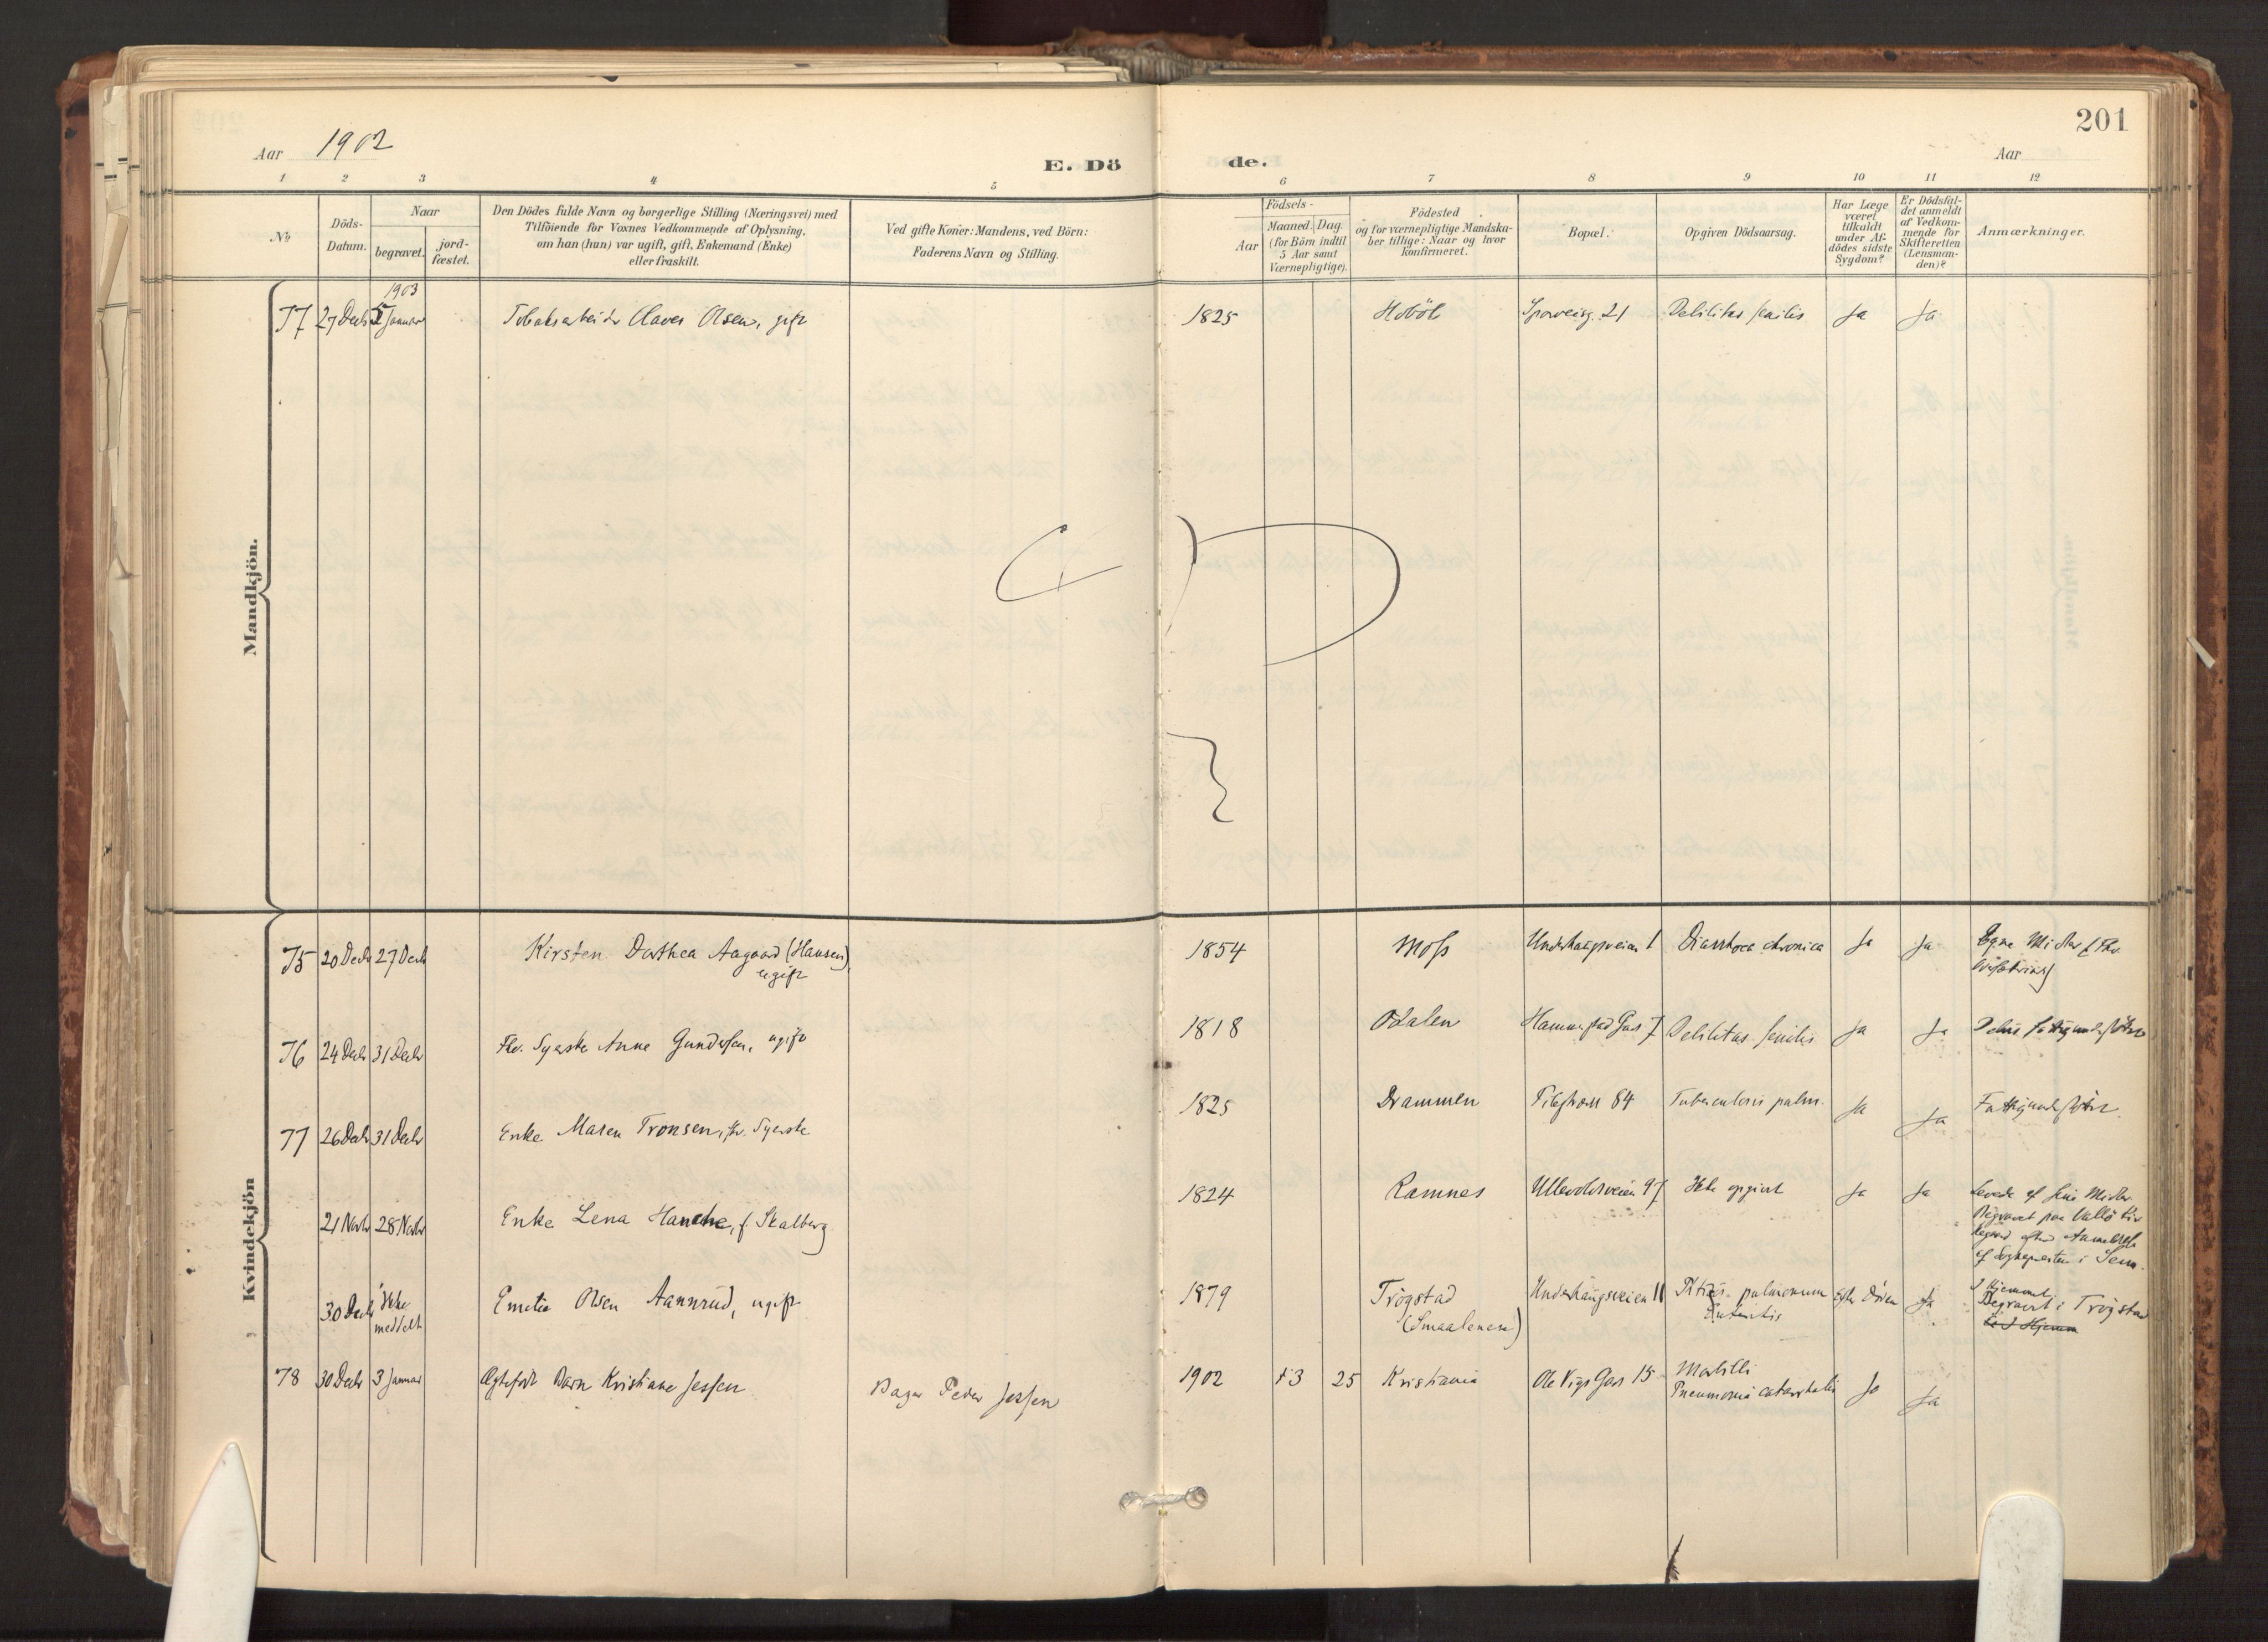 201
Aar 1902
E. Dö de.
Aar
1 2 3 4 5 6 7 8 9 10 11 12
No
Döds-
Datum.
Naar
begravet.
jord-
fæstet.
Den Dödes fulde Navn og borgerlige Stilling (Næringsvei) med
Tilföiende for Voxnes Vedkommende af Oplysning,
om han (hun) var ugift, gift, Enkemand (Enke)
eller fraskilt.
Ved gifte Koner: Mandens, ved Börn:
Faderens Navn og Stilling.
Födsels-
Aar
Maaned. Dag.
(for Börn indtil
5 Aar samt
Værnepligtige).
Födested
og for værnepligtige Mandska-
ber tillige: Naar og hvor
konfirmeret.
Bopæl.
Opgiven Dödsaarsag.
Har Læge
været
tilkaldt
under Af-
dödes sidste
Sygdom?
Er Dödsfal-
det anmeldt
af Vedkom-
mende for
Skifteretten
(Lensman-
den)?
Anmærkninger.
Mandkjön.
1903
77 27 Decbr 5 Januar Tobaksarbeider Olaves Olsen, gift 1825 Hoböl Sporveisg. 21 Debilitas senilis Ja Ja
Kvindekjön
75 20 Decbr 27 Decbr Kirsten Dorthea Aagaard (Hansen), 1854 Moss Underhaugsveien 1 Diarrhoea chronica Ja Ja Egne Midler
ugift
76 24 Decbr 31 Decbr Fhv. Syerske Anne Gundersen, ugift 1818 Odalen Hammerstad Gad 7 Debilitas senilis Ja Ja
77 26 Decbr 31 Decbr Enke Maren Tronsen, fhv. Syerske 1825 Drammen Pilestræd 84 Tuberculosis pulm. Ja Ja Fattigunderstöttet.
21 Novbr 28 Novbr Enke Lena Hanche, f. Skalberg 1824 Ramnes Ullevoldsveien 97 Ikke opgivet Ja Ja Levede af sine Midler.
Begravet paa Vallö Kir
kegaard efter Anmeldelse
af Sognepresten i Sem.
30 Decbr Ikke
meddelt Emilie Olsen Aannrud, ugift 1879 Trögstad
(Smaalenene) Underhaugsveien 11 Phtisis pulmonum
Enteritis Efter Döden Ja I Hjemmet
Begravet i Trögstad
78 30 Decbr 3 Januar Ægtefödt Barn Kristiane Jessen Bager Peder Jessen 1902 3 25 Kristiania Ole Vigs Gad 15 Morbilli
Pneumonia catarrhalis Ja Ja